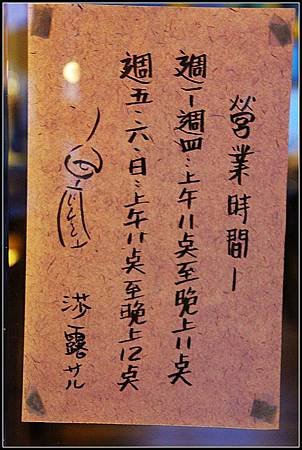 營業時間
週一~週四：上午11点至晚上11点
週五、六、日：上午11点至晚上12点
莎露サル